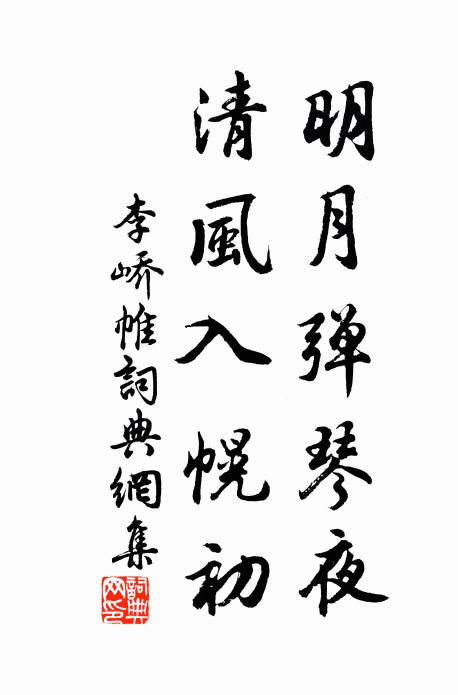 明月弹琴夜
清風入幌初
李嶠帷詞典網集
詞典网印